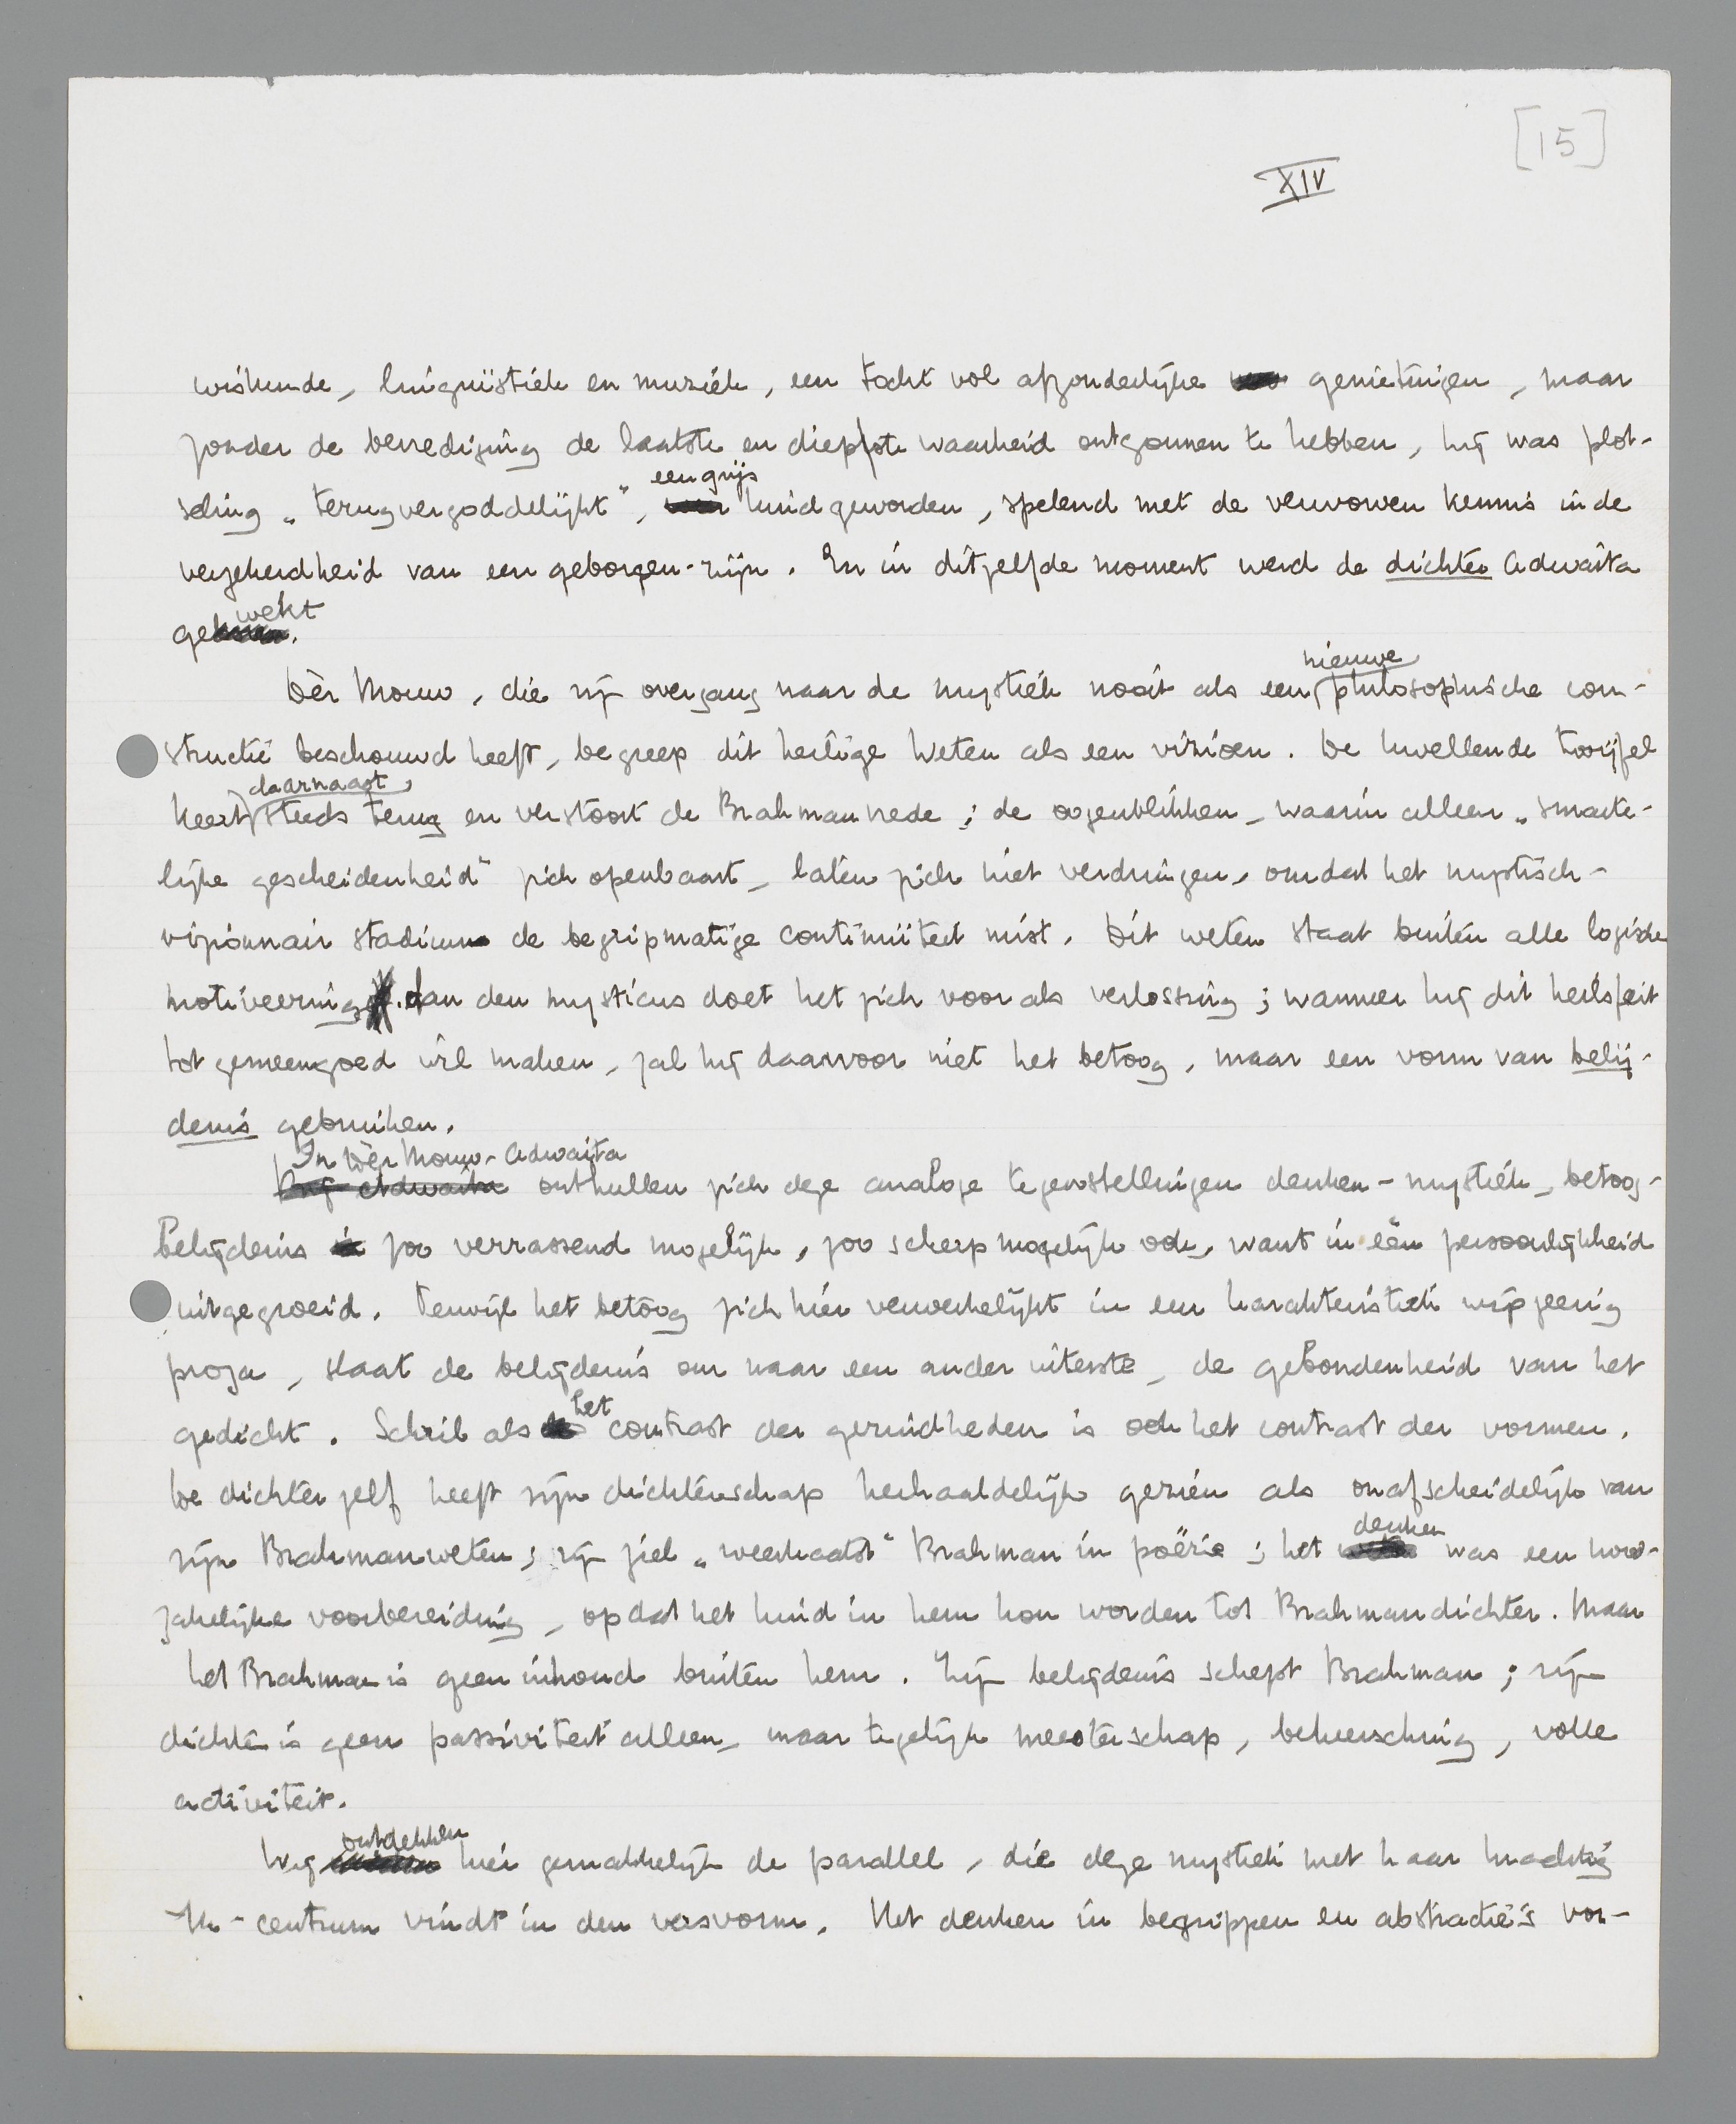 [15]
XIV
wiskunde, linguïstiek en muziek, een tocht vol afzonderlijke genietingen, maar
zonder de bevrediging de laatste en diepste waarheid ontgonnen te hebben, hij was plot-
seling „terugvergoddelijkt”, een grijs kind geworden, spelend met de verworven kennis in de
verzekerdheid van een geborgen-zijn. En in ditzelfde moment werd de dichter Adwaita
gewekt.
Dèr Mouw, die zijn overgang naar de mystiek nooit als een nieuwe philosophische con-
structie beschouwd heeft, begreep dit heilige Weten als een vizioen. De kwellende twijfel
keert daarnaast steeds terug en verstoort de Brahmanvrede; de oogenblikken, waarin alleen „smarte-
lijke gescheidenheid” zich openbaart, laten zich niet verdringen, omdat het mystisch-
vizionnair stadium de begripmatige continuïteit mist. Dit weten staat buiten alle logische
motiveering. Aan den mysticus doet het zich voor als verlossing; wanneer hij dit heilsfeit
tot gemeengoed wil maken, zal hij daarvoor niet het betoog, maar een vorm van belij-
denis gebruiken.
In Dèr Mouw-Adwaita
onthullen zich deze analoge tegenstellingen denken-mystiek, betoog-
belijdenis zoo verrassend mogelijk, zoo scherp mogelijk ook, want in één persoonlijkheid
uitgegroeid. Terwijl het betoog zich hier verwerkelijkt in een karakteristiek wijsgeerig
proza, slaat de belijdenis om naar een ander uiterste, de gebondenheid van het
gedicht. Schril als het contrast der gezindheden is ook het contrast der vormen.
De dichter zelf heeft zijn dichterschap herhaaldelijk gezien als onafscheidelijk van
zijn Brahmanweten; zijn ziel „weerkaatst” Brahman in poëzie; het denken was een nood-
zakelijke voorbereiding, opdat het kind in hem kon worden tot Brahmandichter. Maar
het Brahman is geen inhoud buiten hem. Zijn belijdenis schept Brahman; zijn
dichten is geen passiviteit alleen, maar tegelijk meesterschap, beheersching, volle
activiteit.
Wij ontdekken hier gemakkelijk de parallel, die deze mystiek met haar krachtig
Ik-centrum vindt in den versvorm. Het denken in begrippen en abstractie's vor-